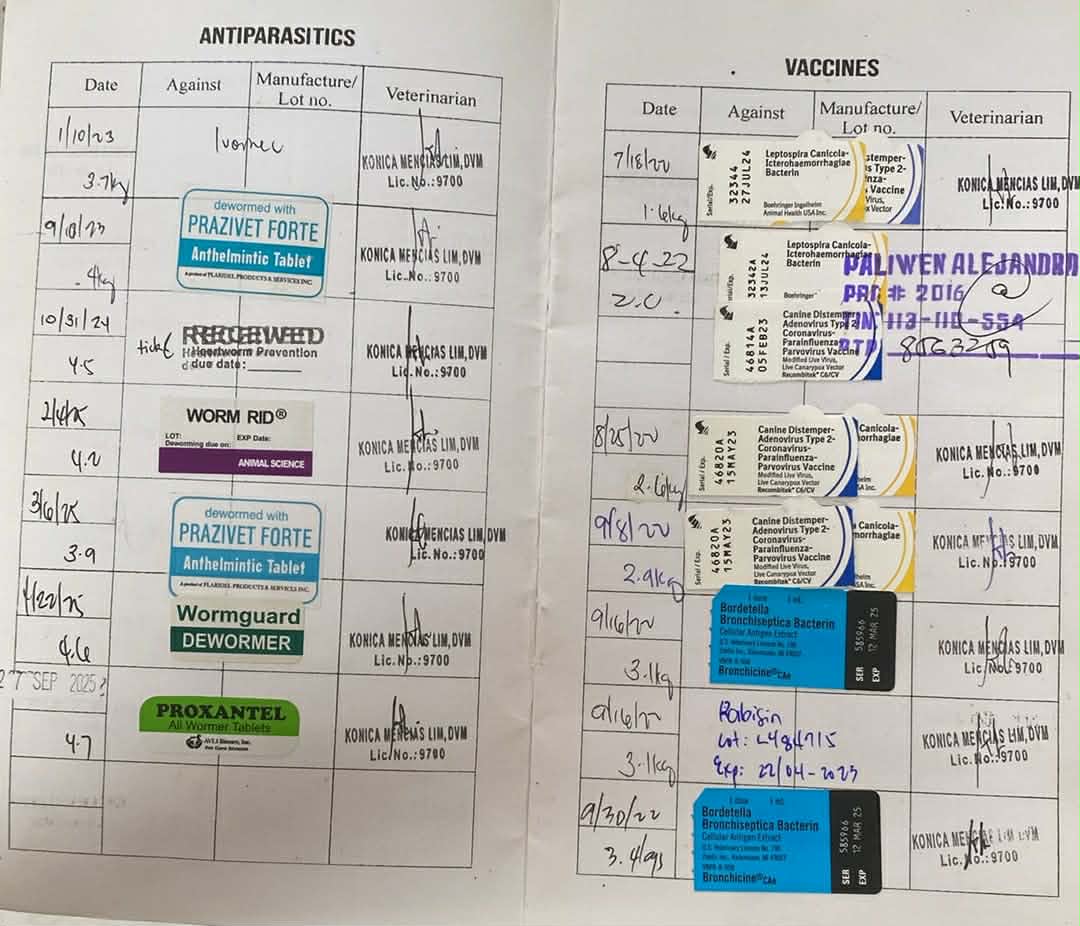 ANTIPARASITICS
Date
Against
Manufacture/
Lot no.
Veterinarian
1/10/23
3.7kg
KONICA MENCIAS LIM, DVM
Lic.No.:9700
9/10/23
4kg
dewormed with
PRAZIVET FORTE
Anthelmintic Tablet
A product of PLARIDEL PRODUCTS & SERVICES INC.
KONICA MENCIAS LIM, DVM
Lic.No.:9700
10/31/24
4.5
Heartworm Prevention
due date:
KONICA MENCIAS LIM, DVM
Lic.No.:9700
2/4/25
4.2
WORM RID®
LOT:
EXP Date:
Deworming due on:
ANIMAL SCIENCE
KONICA MENCIAS LIM, DVM
Lic.No.:9700
3/6/25
3.9
dewormed with
PRAZIVET FORTE
Anthelmintic Tablet
A product of PLARIDEL PRODUCTS & SERVICES INC.
KONICA MENCIAS LIM, DVM
Lic.No.:9700
4/22/25
4.6
Wormguard
DEWORMER
KONICA MENCIAS LIM, DVM
Lic.No.:9700
27 SEP 2025
4.7
PROXANTEL
All Wormer Tablets
KONICA MENCIAS LIM, DVM
Lic.No.:9700
VACCINES
Date
Against
Manufacture/
Lot no.
Veterinarian
7/18/22
1.6kg
Serial/Exp.
32344
27JUL24
Leptospira Canicola-
Icterohaemorrhagiae
Bacterin
Boehringer Ingelheim
Animal Health USA Inc.
stemper-
s Type 2-
nza-
Vaccine
Virus,
x Vector
KONICA MENCIAS LIM, DVM
Lic.No.:9700
8-4-22
2.0
32342A
13JUL24
Leptospira Canicola-
Icterohaemorrhagiae
Bacterin
Boehringer
Serial / Exp.
46814A
05FEB23
Canine Distemper-
Adenovirus Type 2-
Coronavirus-
Parainfluenza-
Parvovirus Vaccine
Modified Live Virus,
Live Canarypox Vector
Recombitek® C6/CV
PALIWEN ALEJANDRO
# 2016
113-110-554
PTR
8/25/22
2.6kg
Serial / Exp.
46820A
15MAY23
Canine Distemper-
Adenovirus Type 2-
Coronavirus-
Parainfluenza-
Parvovirus Vaccine
Modified Live Virus,
Live Canarypox Vector
Recombitek® C6/CV
Canicola-
orrhagiae
KONICA MENCIAS LIM, DVM
Lic.No.:9700
9/8/22
2.9kg
Serial / Exp.
46820A
15MAY23
Canine Distemper-
Adenovirus Type 2-
Coronavirus-
Parainfluenza-
Parvovirus Vaccine
Modified Live Virus,
Live Canarypox Vector
Recombitek® C6/CV
Canicola-
orrhagiae
KONICA MENCIAS LIM, DVM
Lic.No.:9700
9/16/22
3.1kg
1 dose 1 mL
Bordetella
Bronchiseptica Bacterin
Cellular Antigen Extract
Bronchicine® CAe
SER 585966
EXP 12 MAR 25
KONICA MENCIAS LIM, DVM
Lic.No.:9700
9/16/22
3.1kg
Rabisin
Lot: L484715
Exp: 22/04-2023
KONICA MENCIAS LIM, DVM
Lic.No.:9700
9/30/22
3.4kgs
1 dose 1 mL
Bordetella
Bronchiseptica Bacterin
Cellular Antigen Extract
Bronchicine® CAe
SER 585966
EXP 12 MAR 25
KONICA MENCIAS LIM, DVM
Lic.No.:9700